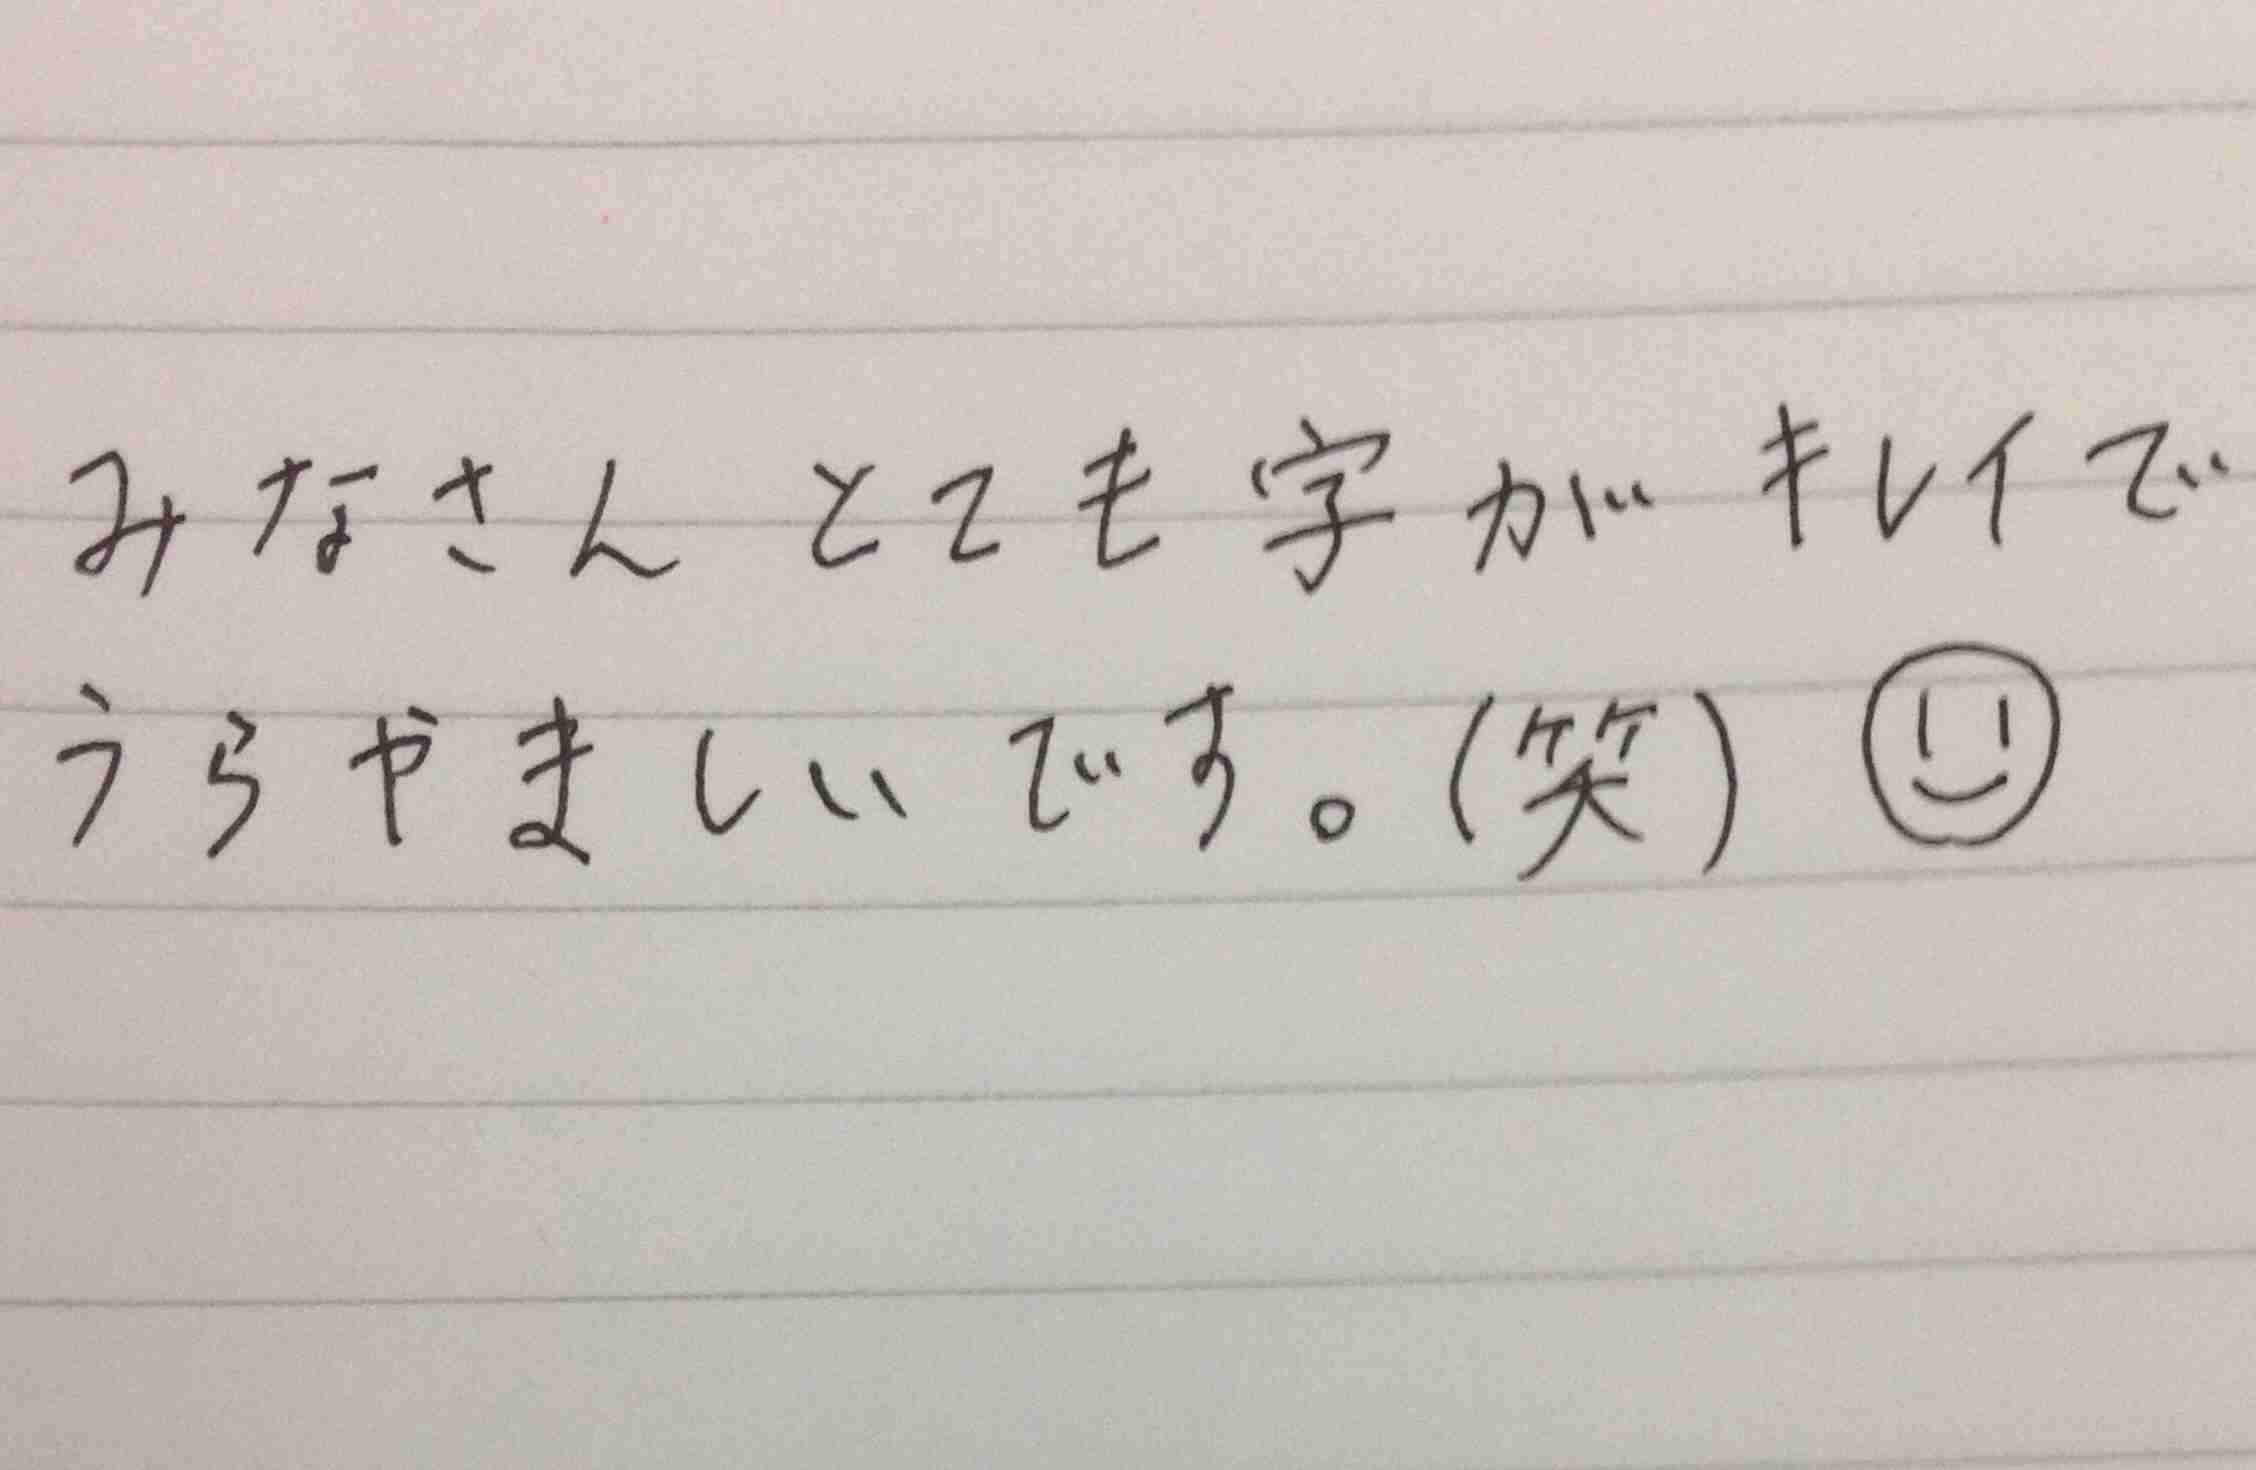 みなさんとても字がキレイで
うらやましいです。(笑)